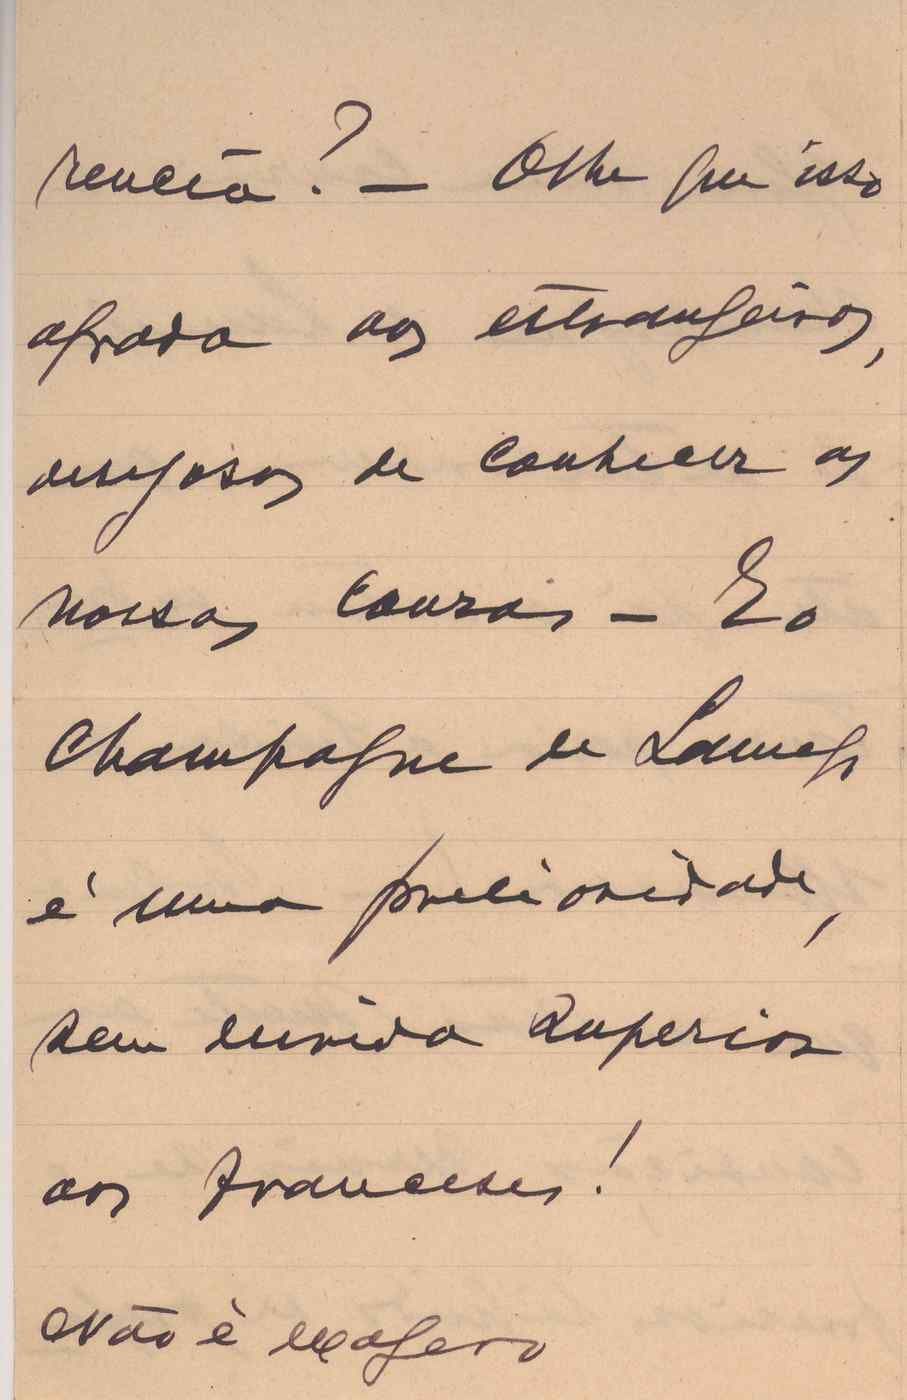 rencia? — Olhe que isso
agrada aos estrangeiros,
desejosos de conhecer as
nossas cousas — E o
Champagne de Lamego
é uma preciosidade,
sem duvida superior
aos franceses!
Não é exagero